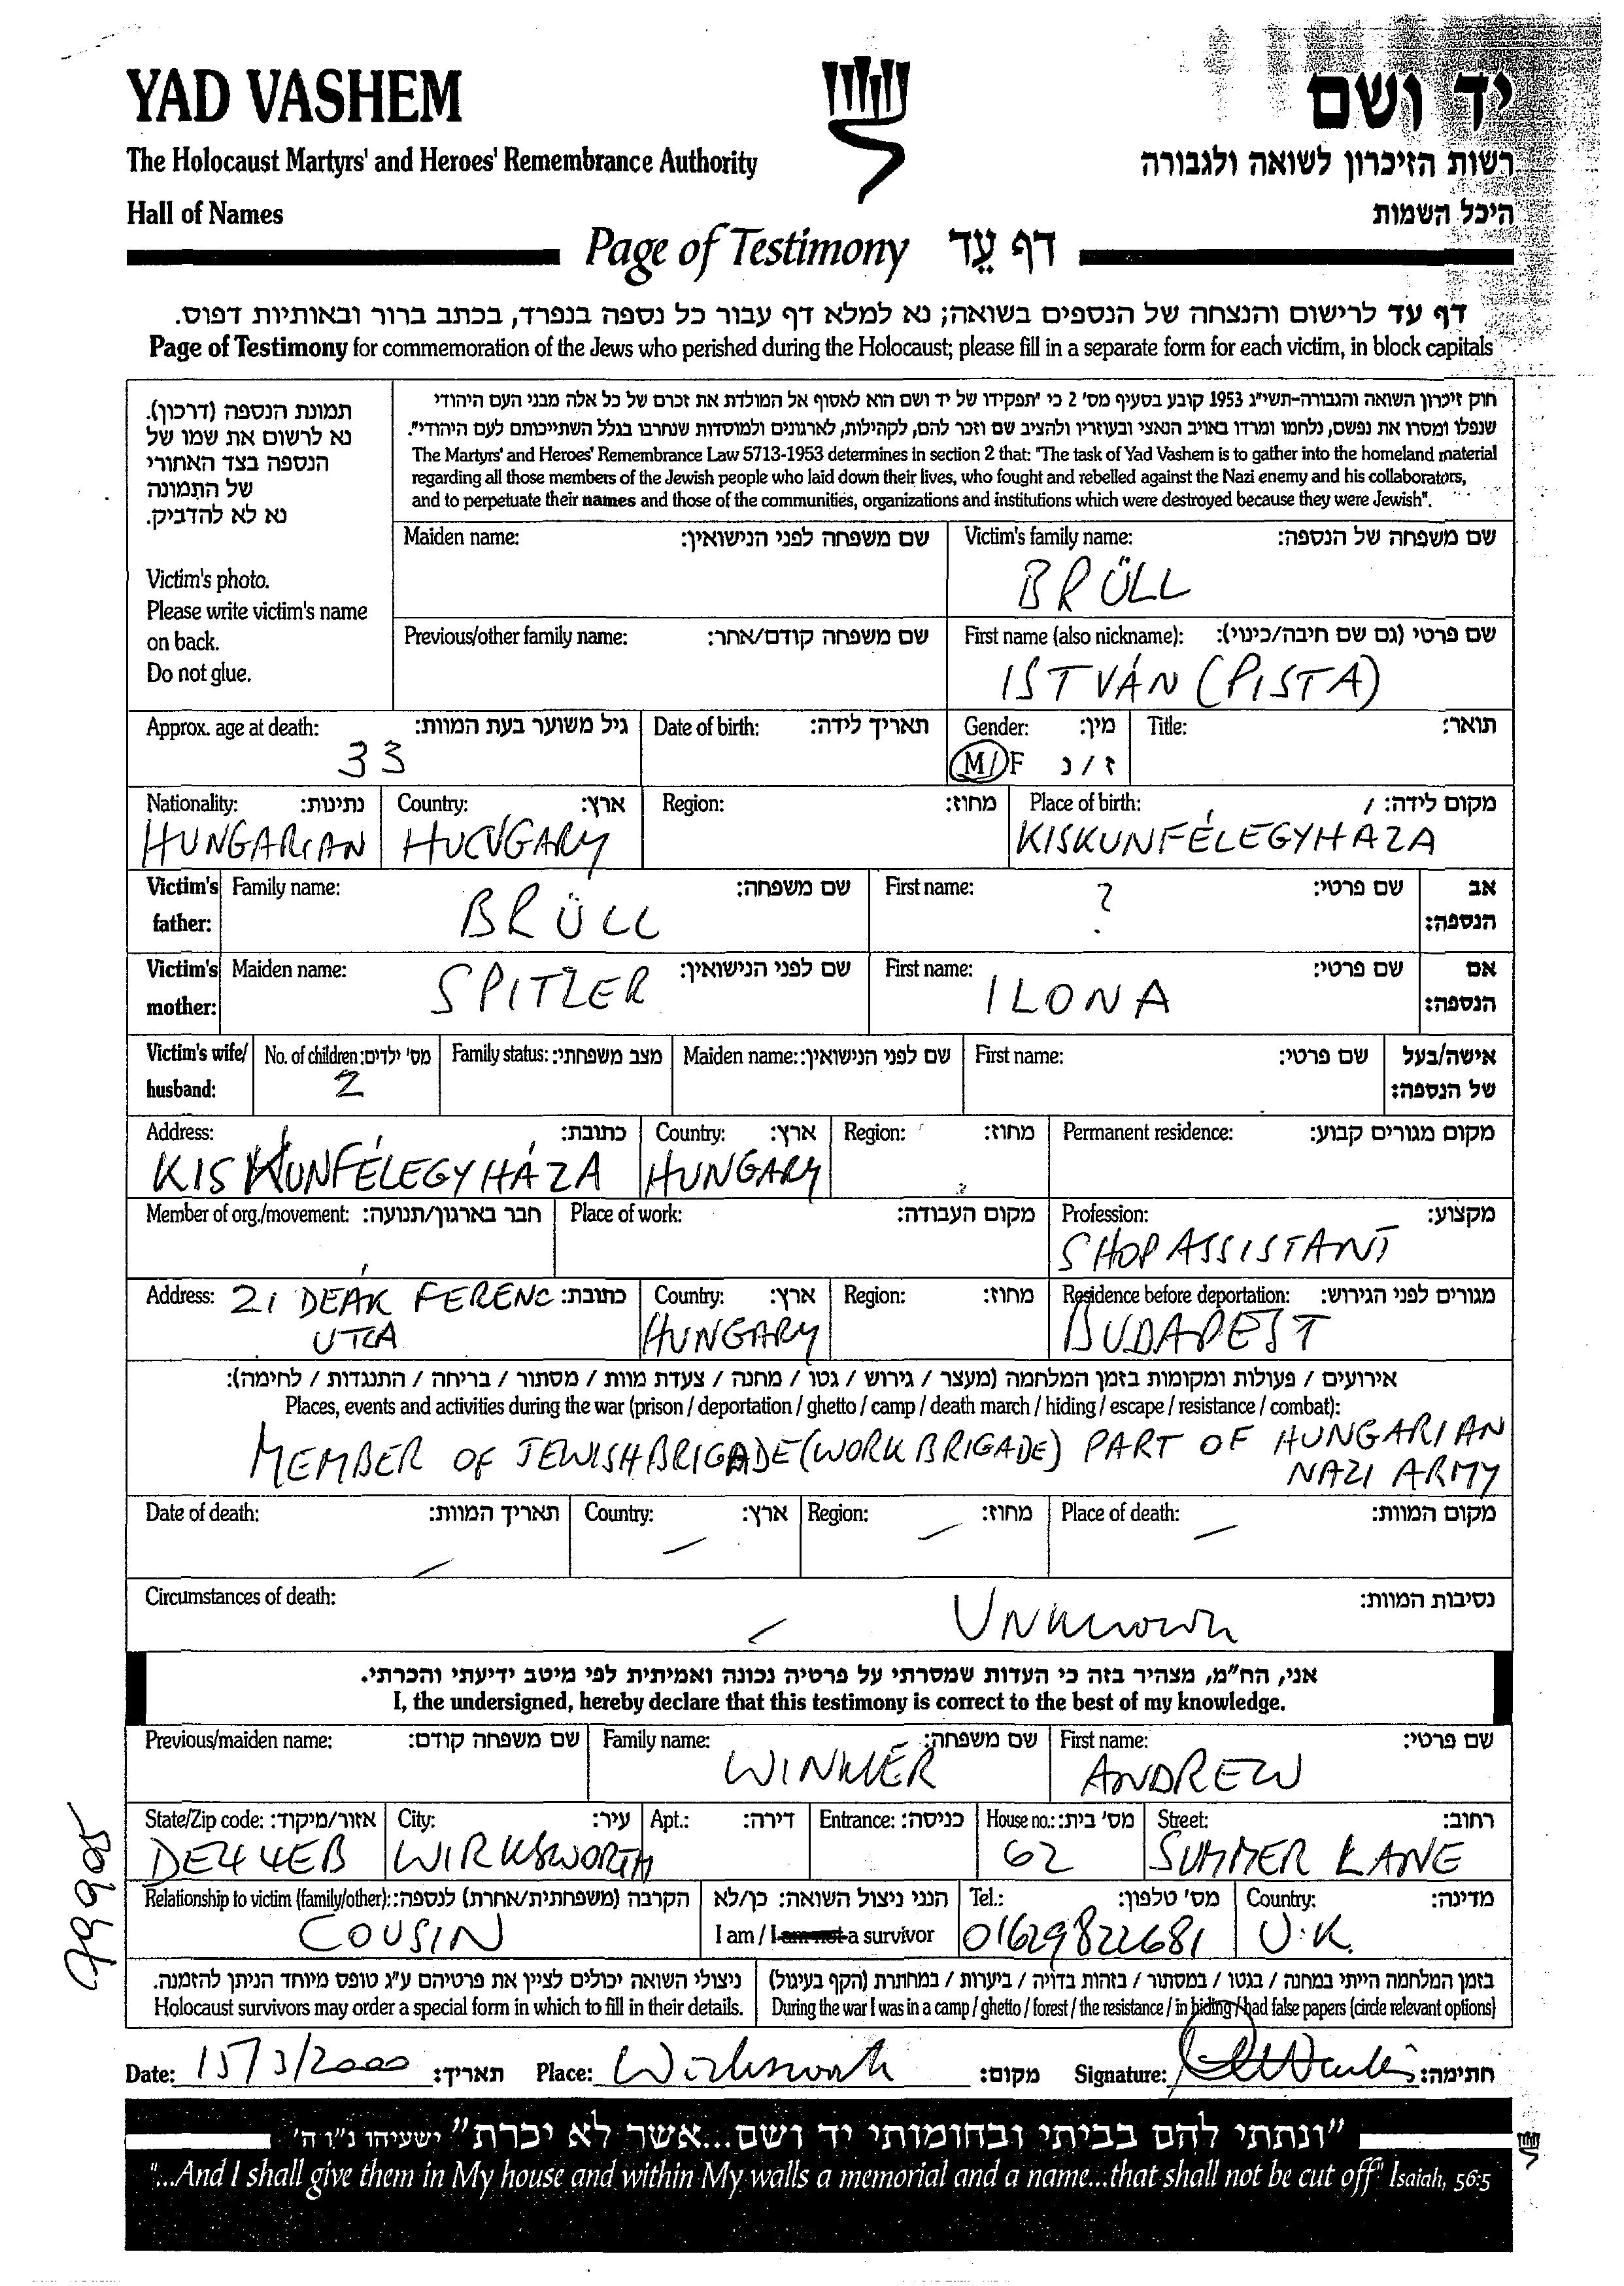 YAD VASHEM
יד ושם
The Holocaust Martyrs' and Heroes' Remembrance Authority
רשות הזיכרון לשואה ולגבורה
Hall of Names
היכל השמות
Page of Testimony דף עֵד
דף עד לרישום והנצחה של הנספים בשואה; נא למלא דף עבור כל נספה בנפרד, בכתב ברור ובאותיות דפוס.
Page of Testimony for commemoration of the Jews who perished during the Holocaust; please fill in a separate form for each victim, in block capitals
תמונת הנספה (דרכון).
נא לרשום את שמו של
הנספה בצד האחורי
של התמונה
נא לא להדביק.
Victim's photo.
Please write victim's name
on back.
Do not glue.
חוק זיכרון השואה והגבורה-תשי"ג 1953 קובע בסעיף מס' 2 כי "תפקידו של יד ושם הוא לאסוף אל המולדת את זכרם של כל אלה מבני העם היהודי
שנפלו ומסרו את נפשם, נלחמו ומרדו באויב הנאצי ובעוזריו ולהציב שם וזכר להם, לקהילות, לארגונים ולמוסדות שנחרבו בגלל השתייכותם לעם היהודי".
The Martyrs' and Heroes' Remembrance Law 5713-1953 determines in section 2 that: "The task of Yad Vashem is to gather into the homeland material
regarding all those members of the Jewish people who laid down their lives, who fought and rebelled against the Nazi enemy and his collaborators,
and to perpetuate their names and those of the communities, organizations and institutions which were destroyed because they were Jewish".
Maiden name: שם משפחה לפני הנישואין: Victim's family name: שם משפחה של הנספה:
BRÜLL
Previous/other family name: שם משפחה קודם/אחר: First name (also nickname): שם פרטי (גם שם חיבה/כינוי):
ISTVÁN (PISTA)
Approx. age at death: גיל משוער בעת המוות: Date of birth: תאריך לידה: Gender: מין: Title: תואר:
33 M/F ז/נ
Nationality: נתינות: Country: ארץ: Region: מחוז: Place of birth: מקום לידה:
HUNGARIAN HUNGARY KISKUNFÉLEGYHÁZA
Victim's father: Family name: שם משפחה: First name: שם פרטי: אב הנספה:
BRÜLL ?
Victim's mother: Maiden name: שם לפני הנישואין: First name: שם פרטי: אם הנספה:
SPITZER ILONA
Victim's wife/ husband: No. of children: מס' ילדים: Family status: מצב משפחתי: Maiden name: שם לפני הנישואין: First name: שם פרטי: אישה/בעל של הנספה:
2
Address: כתובת: Country: ארץ: Region: מחוז: Permanent residence: מקום מגורים קבוע:
KISKUNFÉLEGYHÁZA HUNGARY
Member of org./movement: חבר בארגון/תנועה: Place of work: מקום העבודה: Profession: מקצוע:
SHOP ASSISTANT
Address: 21 DEÁK FERENC כתובת: Country: ארץ: Region: מחוז: Residence before deportation: מגורים לפני הגירוש:
UTCA HUNGARY BUDAPEST
אירועים / פעולות ומקומות בזמן המלחמה (מעצר / גירוש / גטו / מחנה / צעדת מוות / מסתור / בריחה / התנגדות / לחימה):
Places, events and activities during the war (prison / deportation / ghetto / camp / death march / hiding / escape / resistance / combat):
MEMBER OF JEWISH BRIGADE (WORK BRIGADE) PART OF HUNGARIAN
NAZI ARMY
Date of death: תאריך המוות: Country: ארץ: Region: מחוז: Place of death: מקום המוות:
Circumstances of death: נסיבות המוות:
Unknown
אני, הח"מ, מצהיר בזה כי העדות שמסרתי על פרטיה נכונה ואמיתית לפי מיטב ידיעתי והכרתי.
I, the undersigned, hereby declare that this testimony is correct to the best of my knowledge.
Previous/maiden name: שם משפחה קודם: Family name: שם משפחה: First name: שם פרטי:
WINKLER ANDREW
State/Zip code: אזור/מיקוד: City: עיר: Apt.: דירה: Entrance: כניסה: House no.: מס' בית: Street: רחוב:
DE4 4EB WIRKSWORTH 62 SUMMER LANE
Relationship to victim (family/other): הקרבה (משפחתית/אחרת) לנספה: הנני ניצול השואה: כן/לא Tel.: מס' טלפון: Country: מדינה:
COUSIN I am / I am not a survivor 01629822681 U.K.
ניצולי השואה יכולים לציין את פרטיהם ע"ג טופס מיוחד הניתן להזמנה.
Holocaust survivors may order a special form in which to fill in their details.
בזמן המלחמה הייתי במחנה / בגטו / במסתור / בזהות בדויה / ביערות / במחתרת (הקף בעיגול)
During the war I was in a camp / ghetto / forest / the resistance / in hiding / had false papers (circle relevant options)
Date: 15/3/2000 תאריך: Place: Wirksworth מקום: Signature: חתימה:
"ונתתי להם בביתי ובחומותי יד ושם...אשר לא יכרת" ישעיהו נ"ו ה'
"...And I shall give them in My house and within My walls a memorial and a name...that shall not be cut off" Isaiah, 56:5